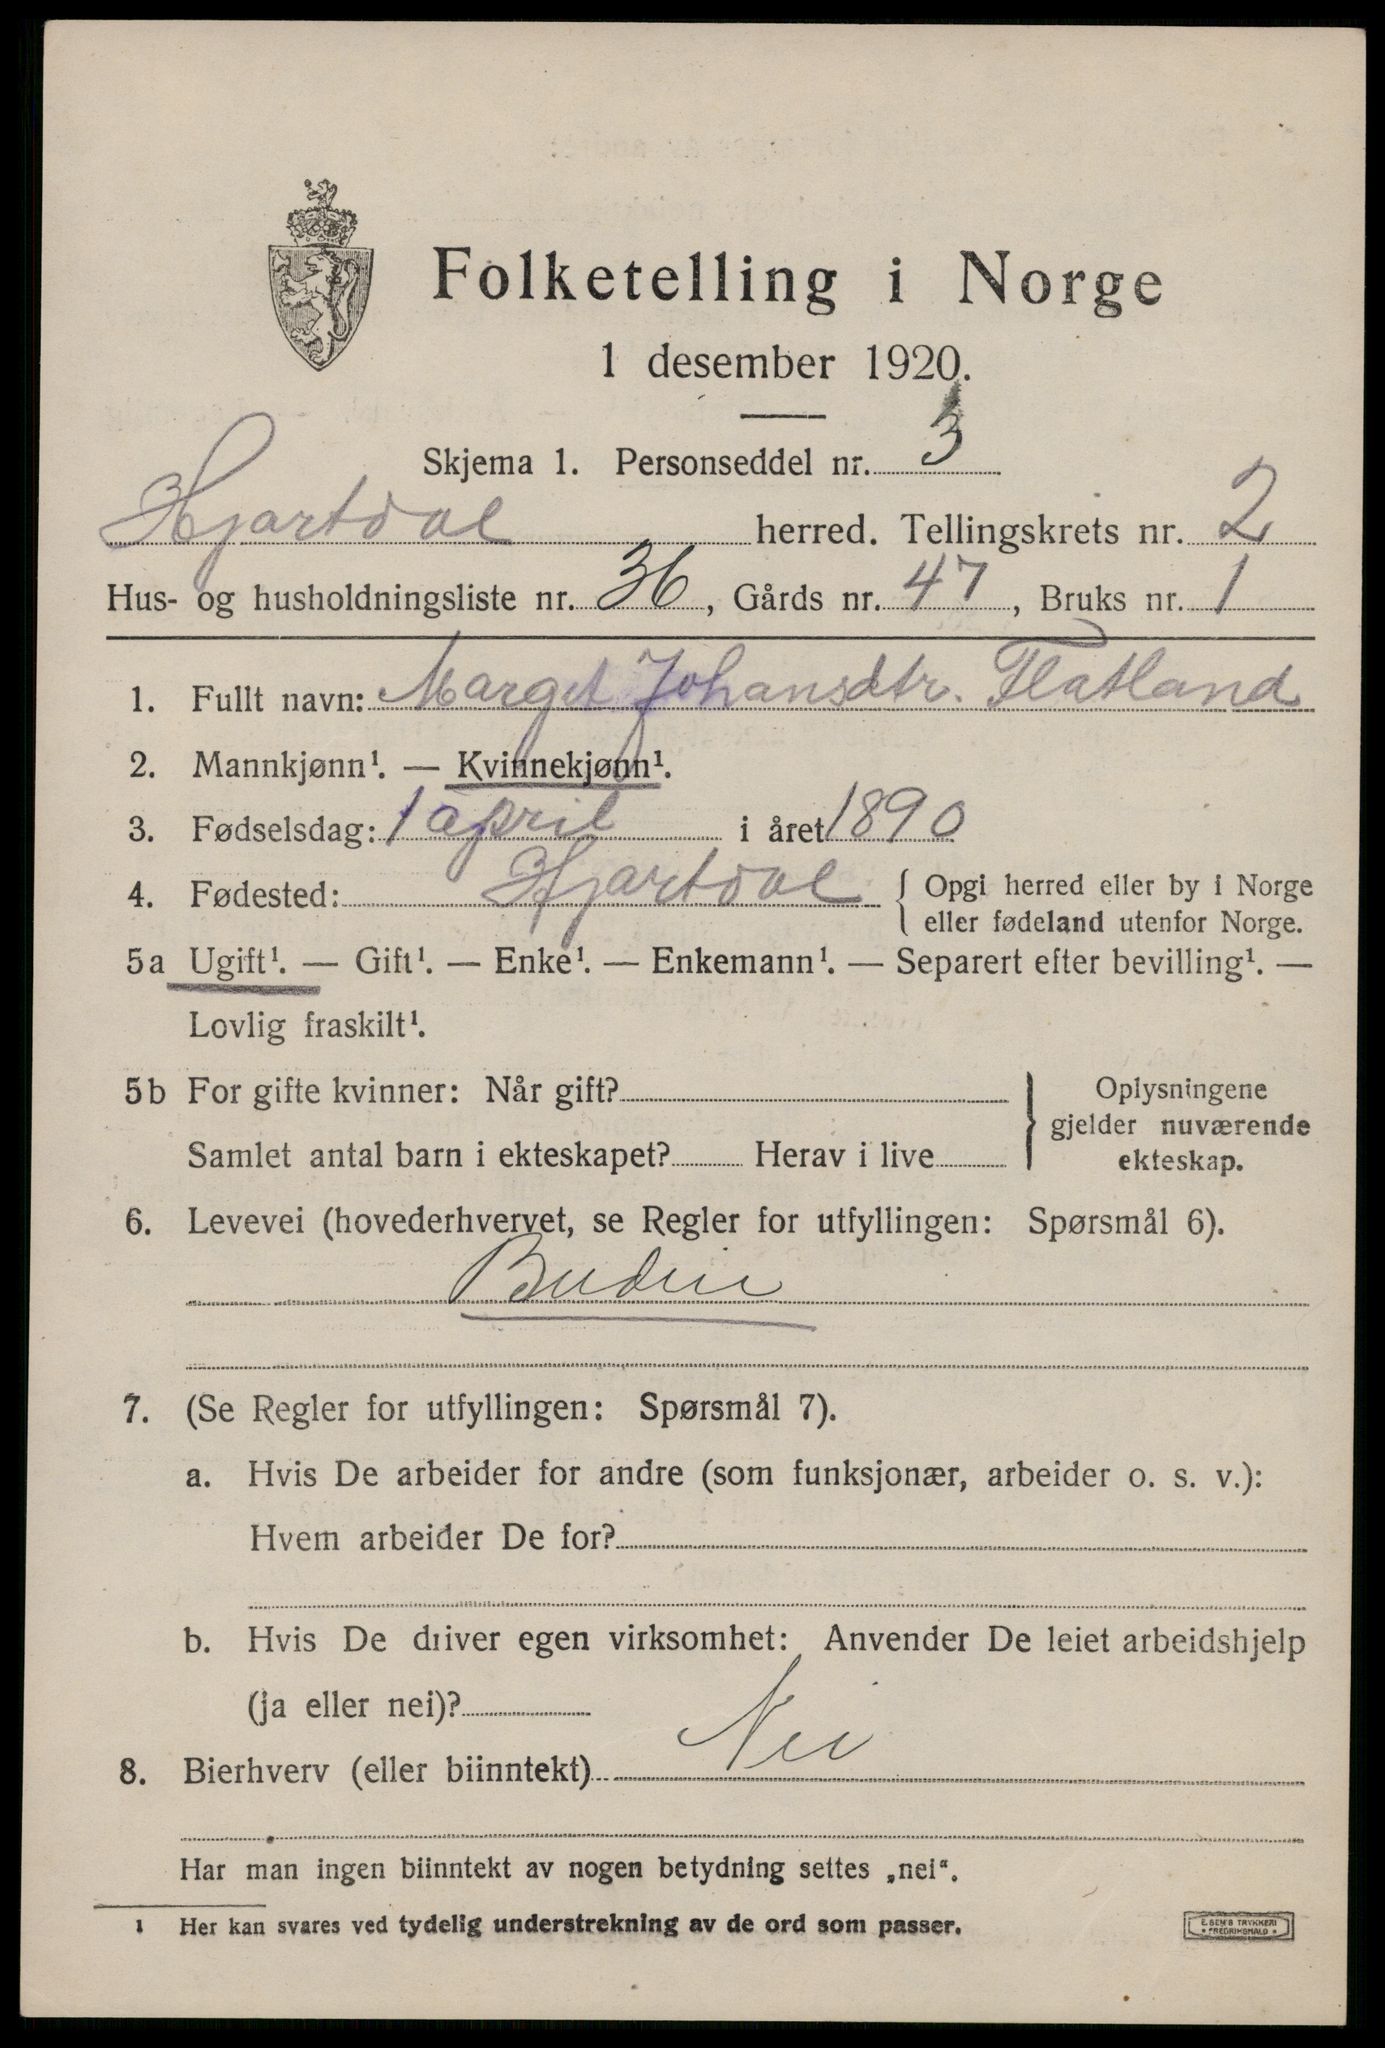 Folketelling i Norge
1 desember 1920.
Skjema 1. Personseddel nr. 3
Hjartdal herred. Tellingskrets nr. 2
Hus- og husholdningsliste nr. 36, Gårds nr. 47, Bruks nr. 1
1. Fullt navn: Margit Johansdtr. Flatland
2. Mannkjønn¹. — Kvinnekjønn¹.
3. Fødselsdag: 1 april i året 1890
4. Fødested: Hjartdal { Opgi herred eller by i Norge
eller fødeland utenfor Norge.
5a Ugift¹. — Gift¹. — Enke¹. — Enkemann¹. — Separert efter bevilling¹. —
Lovlig fraskilt¹.
5b For gifte kvinner: Når gift? } Oplysningene
gjelder nuværende
Samlet antal barn i ekteskapet? Herav i live ekteskap.
6. Levevei (hovederhvervet, se Regler for utfyllingen: Spørsmål 6).
Budeie
7. (Se Regler for utfyllingen: Spørsmål 7).
a. Hvis De arbeider for andre (som funksjonær, arbeider o. s. v.):
Hvem arbeider De for?
b. Hvis De driver egen virksomhet: Anvender De leiet arbeidshjelp
(ja eller nei)?
8. Bierhverv (eller biinntekt) Nei
Har man ingen biinntekt av nogen betydning settes „nei“.
1 Her kan svares ved tydelig understrekning av de ord som passer.
E. SEM'S TRYKKERI
• FREDRIKSHALD •